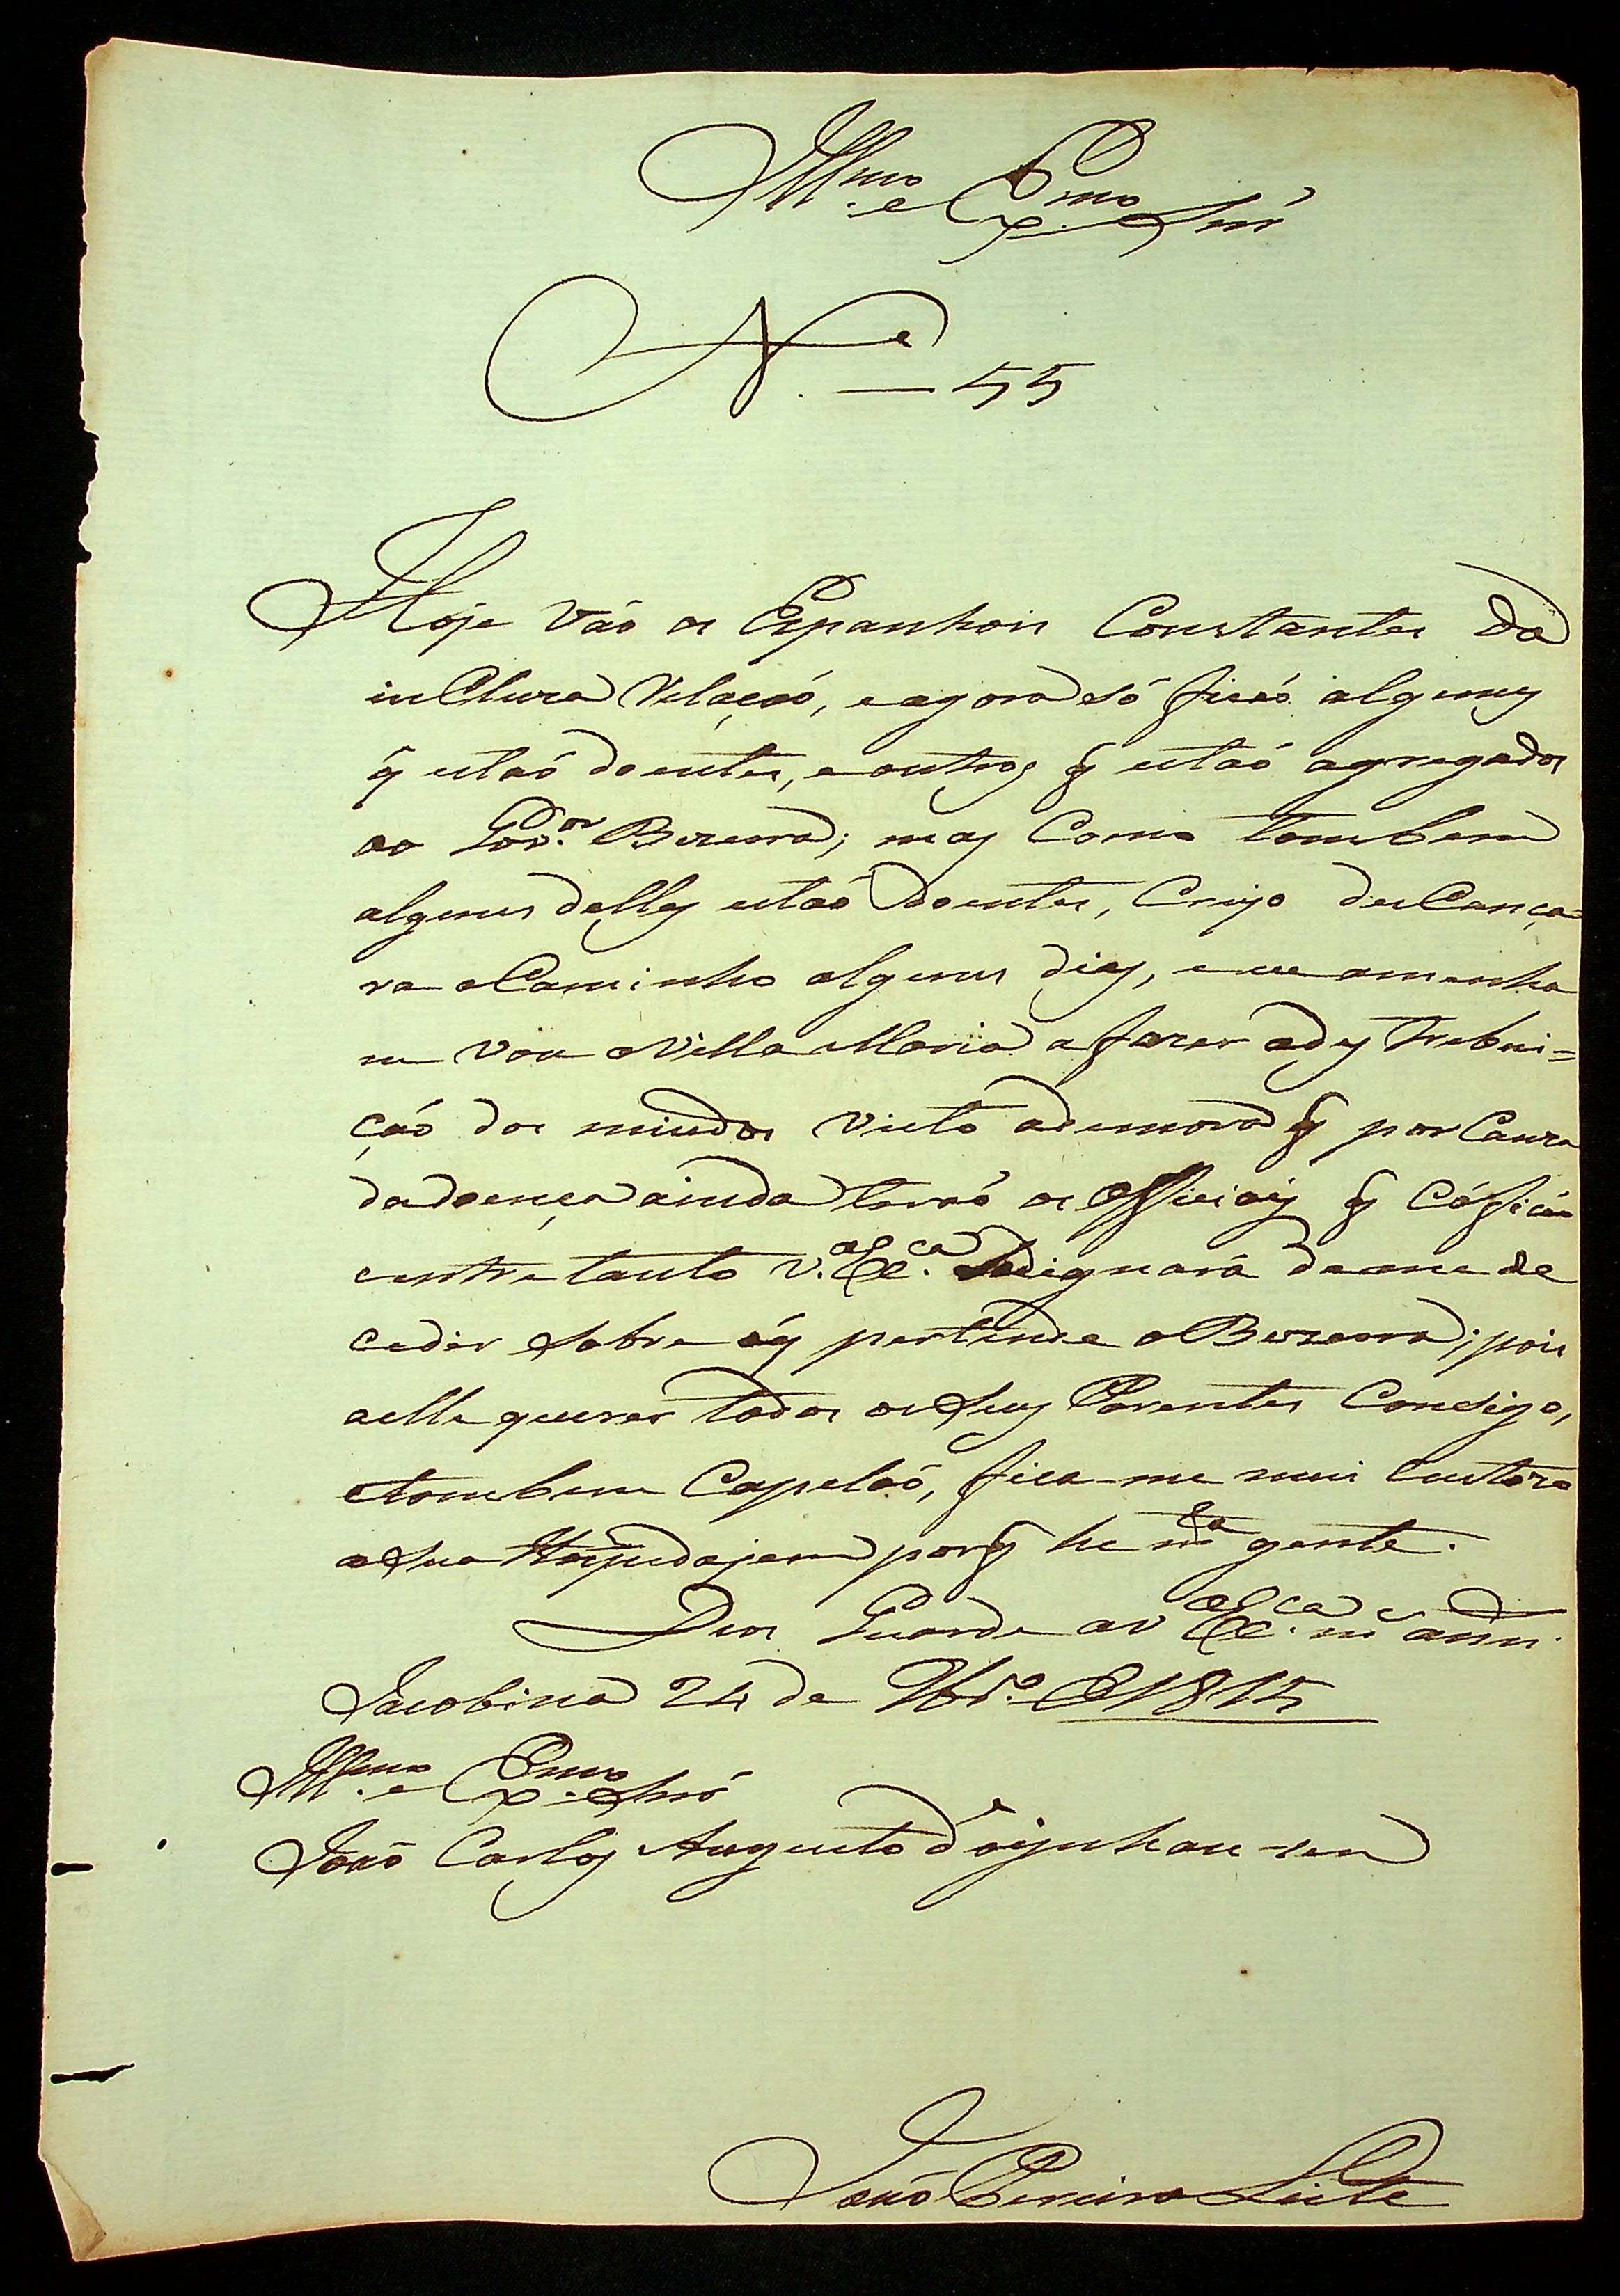 Illmo. e Exmo. Snr
N.e — 55
Hoje vaó os Espanhois Constantes da
incluza Relaçaó, eagora só ficaó alguns
q̃ estaó doentes, eoutros q̃ estaó agregados
ao Gov.or Bezerra; mas Como tambem
alguns delles estaó doentes, Cujo desCança-
ra aCaminho alguns dias, eeu amenha
me vou aVilla Maria afazer adestrebui=
çaó dos miudos visto ademora q̃ por Cauza
dadoença ainda teraó os Officiais q̃ Cá ficaó
eentretanto V. Ex.ca sedignará deme de
cedir sobre oq̃ pertende oBezerra; pois
aelle querer todos osseus Parentes Consigo,
etambem Capelaó, fica-me mui Custoza
asua Huspedajem porq̃ he m.ta gente.
Deos Guarde aV Ex.ca m.s ann.s
Jacobina 24 de 9br.o de 1815
Illmo. e Exmo. Snr
Joaó Carlos Augusto d'oijnhausen
Joaó Pereira Leite